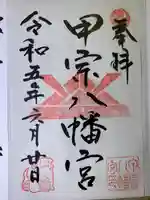 奉拝
甲宗八幡宮
令和五年六月廿日